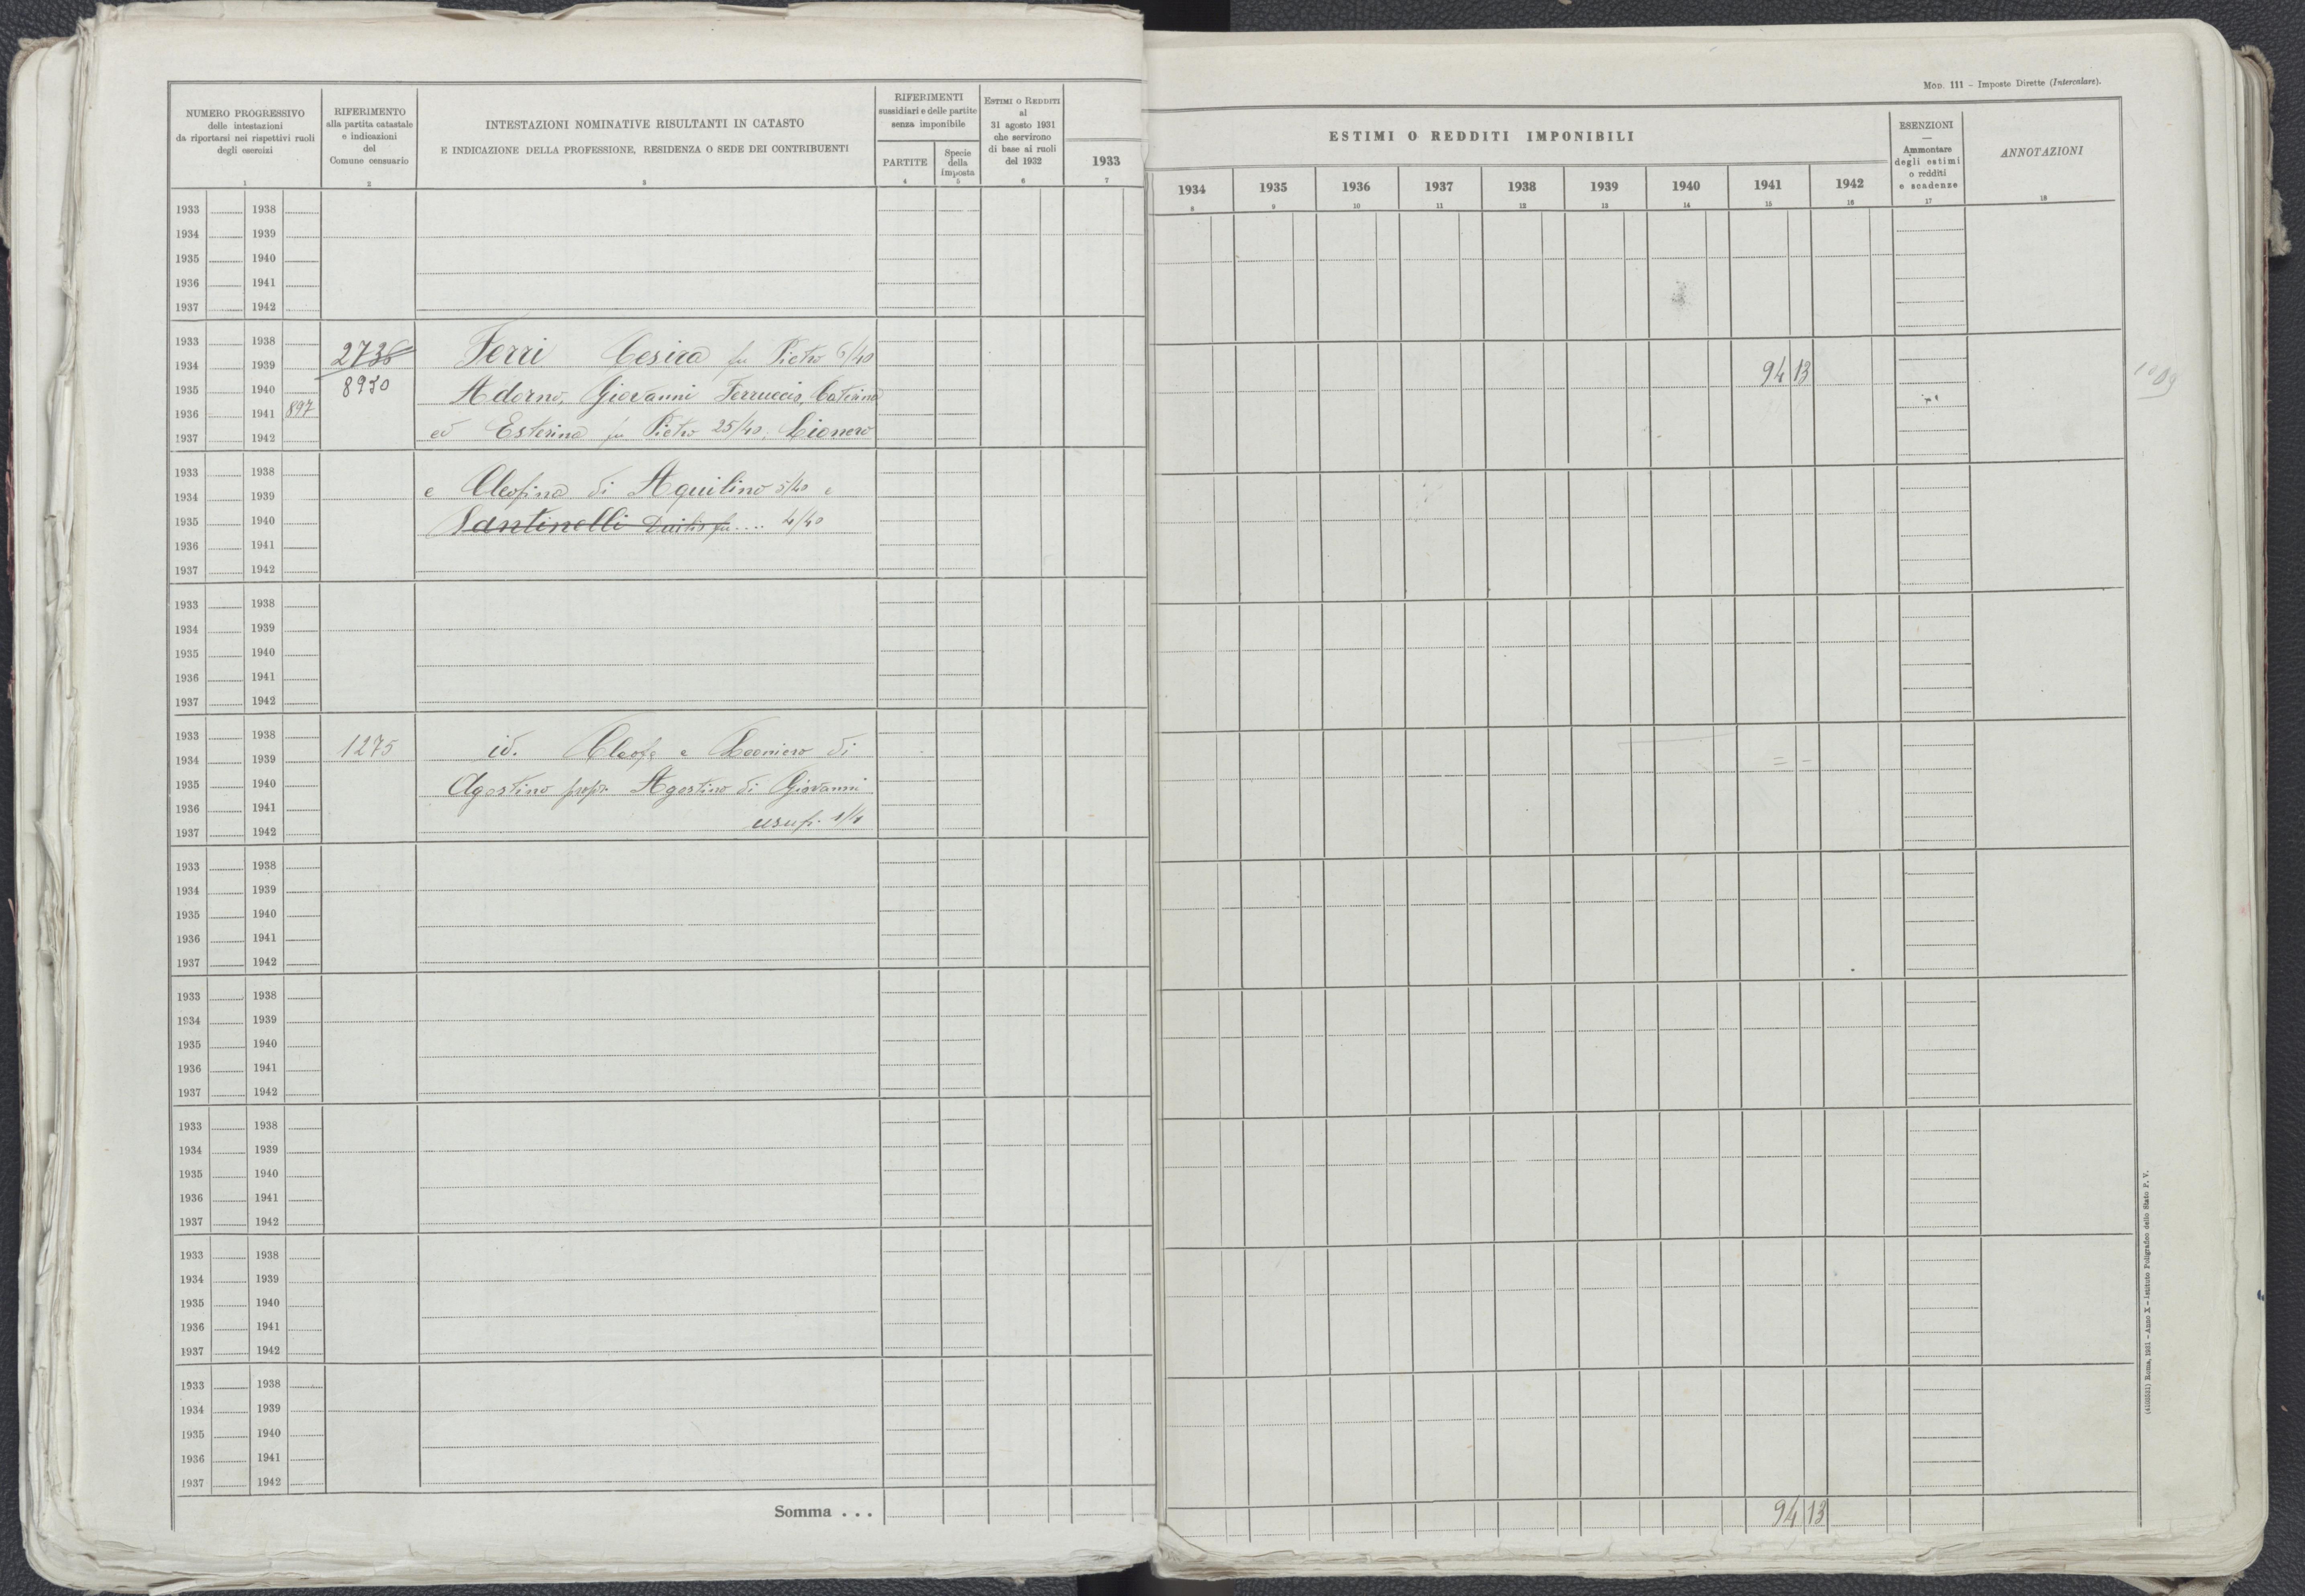 Mod. 111 - Imposte Dirette (Intercalare).
NUMERO PROGRESSIVO
delle intestazioni
da riportarsi nei rispettivi ruoli
degli esercizi
1
RIFERIMENTO
alla partita catastale
e indicazioni
del
Comune censuario
2
INTESTAZIONI NOMINATIVE RISULTANTI IN CATASTO
E INDICAZIONE DELLA PROFESSIONE, RESIDENZA O SEDE DEI CONTRIBUENTI
3
RIFERIMENTI
sussidiari e delle partite
senza imponibile
PARTITE
4
Specie
della
imposta
5
Estimi o Redditi
al
31 agosto 1931
che servirono
di base ai ruoli
del 1932
6
1933
7
ESTIMI O REDDITI IMPONIBILI
1934 1935 1936 1937 1938 1939 1940 1941 1942
8 9 10 11 12 13 14 15 16
ESENZIONI
—
Ammontare
degli estimi
o redditi
e scadenze
17
ANNOTAZIONI
18
1933 1938
1934 1939
1935 1940
1936 1941
1937 1942
1933 1938
1934 1939 2736 Ferri Cesira fu Pietro 6/40 94 13
1935 1940 8930 Adorno, Giovanni Ferruccio, Caterina
1936 1941 897
1937 1942 ed Esterina fu Pietro 25/40, Lionero
1933 1938
1934 1939 e Cleofina di Aquilino 5/40 e
1935 1940 Santinelli Duilio fu .... 4/40
1936 1941
1937 1942
1933 1938
1934 1939
1935 1940
1936 1941
1937 1942
1933 1938
1934 1939 1275 id. Cleofe e Leoniero di
1935 1940 Agostino propr. Agostino di Giovanni
1936 1941 usuf. 1/4
1937 1942
1933 1938
1934 1939
1935 1940
1936 1941
1937 1942
1933 1938
1934 1939
1935 1940
1936 1941
1937 1942
1933 1938
1934 1939
1935 1940
1936 1941
1937 1942
1933 1938
1934 1939
1935 1940
1936 1941
1937 1942
1933 1938
1934 1939
1935 1940
1936 1941
1937 1942
Somma . . . 94 13
(4103531) Roma, 1931 - Anno X - Istituto Poligrafico dello Stato P. V.